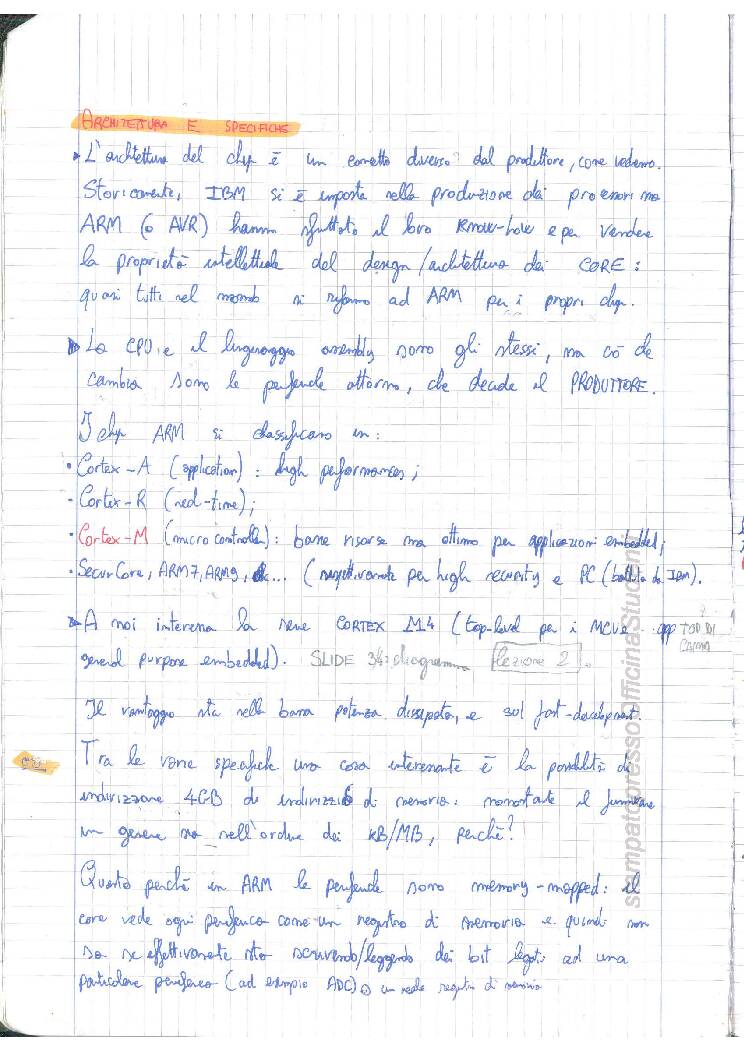 ARCHITETTURA E SPECIFICHE
L'architettura del chip è un concetto diverso dal produttore, come vedremo.
Storicamente, IBM si è imposta nella produzione dei processori ma
ARM (o AVR) hanno sfruttato il loro know-how e per vendere
la proprietà intellettuale del design/architettura dei CORE:
quasi tutti nel mondo si rifanno ad ARM per i propri chip.
La CPU e il linguaggio assembly sono gli stessi, ma ciò che
cambia sono le periferiche attorno, che decide il PRODUTTORE.
I chip ARM si classificano in:
• Cortex-A (application): high performances;
- Cortex-R (real-time);
• Cortex-M (microcontroller): basse risorse ma ottimo per applicazioni embedded;
• SecurCore, ARM7, ARM9, ... (rispettivamente per high security e PC (battuta da IBM).
A noi interessa la serie CORTEX M4 (top-level per i MCUs app TOP DI
general purpose embedded). SLIDE 34: diagramma lezione 2.
Il vantaggio sta nella bassa potenza dissipata, e sul fast-development.
Tra le varie specifiche una cosa interessante è la possibilità di
indirizzare 4GB di indirizzi di memoria: nonostante il firmware
in genere sia nell'ordine dei kB/MB, perché?
Questo perché in ARM le periferiche sono memory-mapped: il
core vede ogni periferica come un registro di memoria e quindi non
sa se effettivamente sta scrivendo/leggendo dei bit legati ad una
particolare periferica (ad esempio ADC) o un reale registro di memoria
stampatopressoOfficinaStudenti